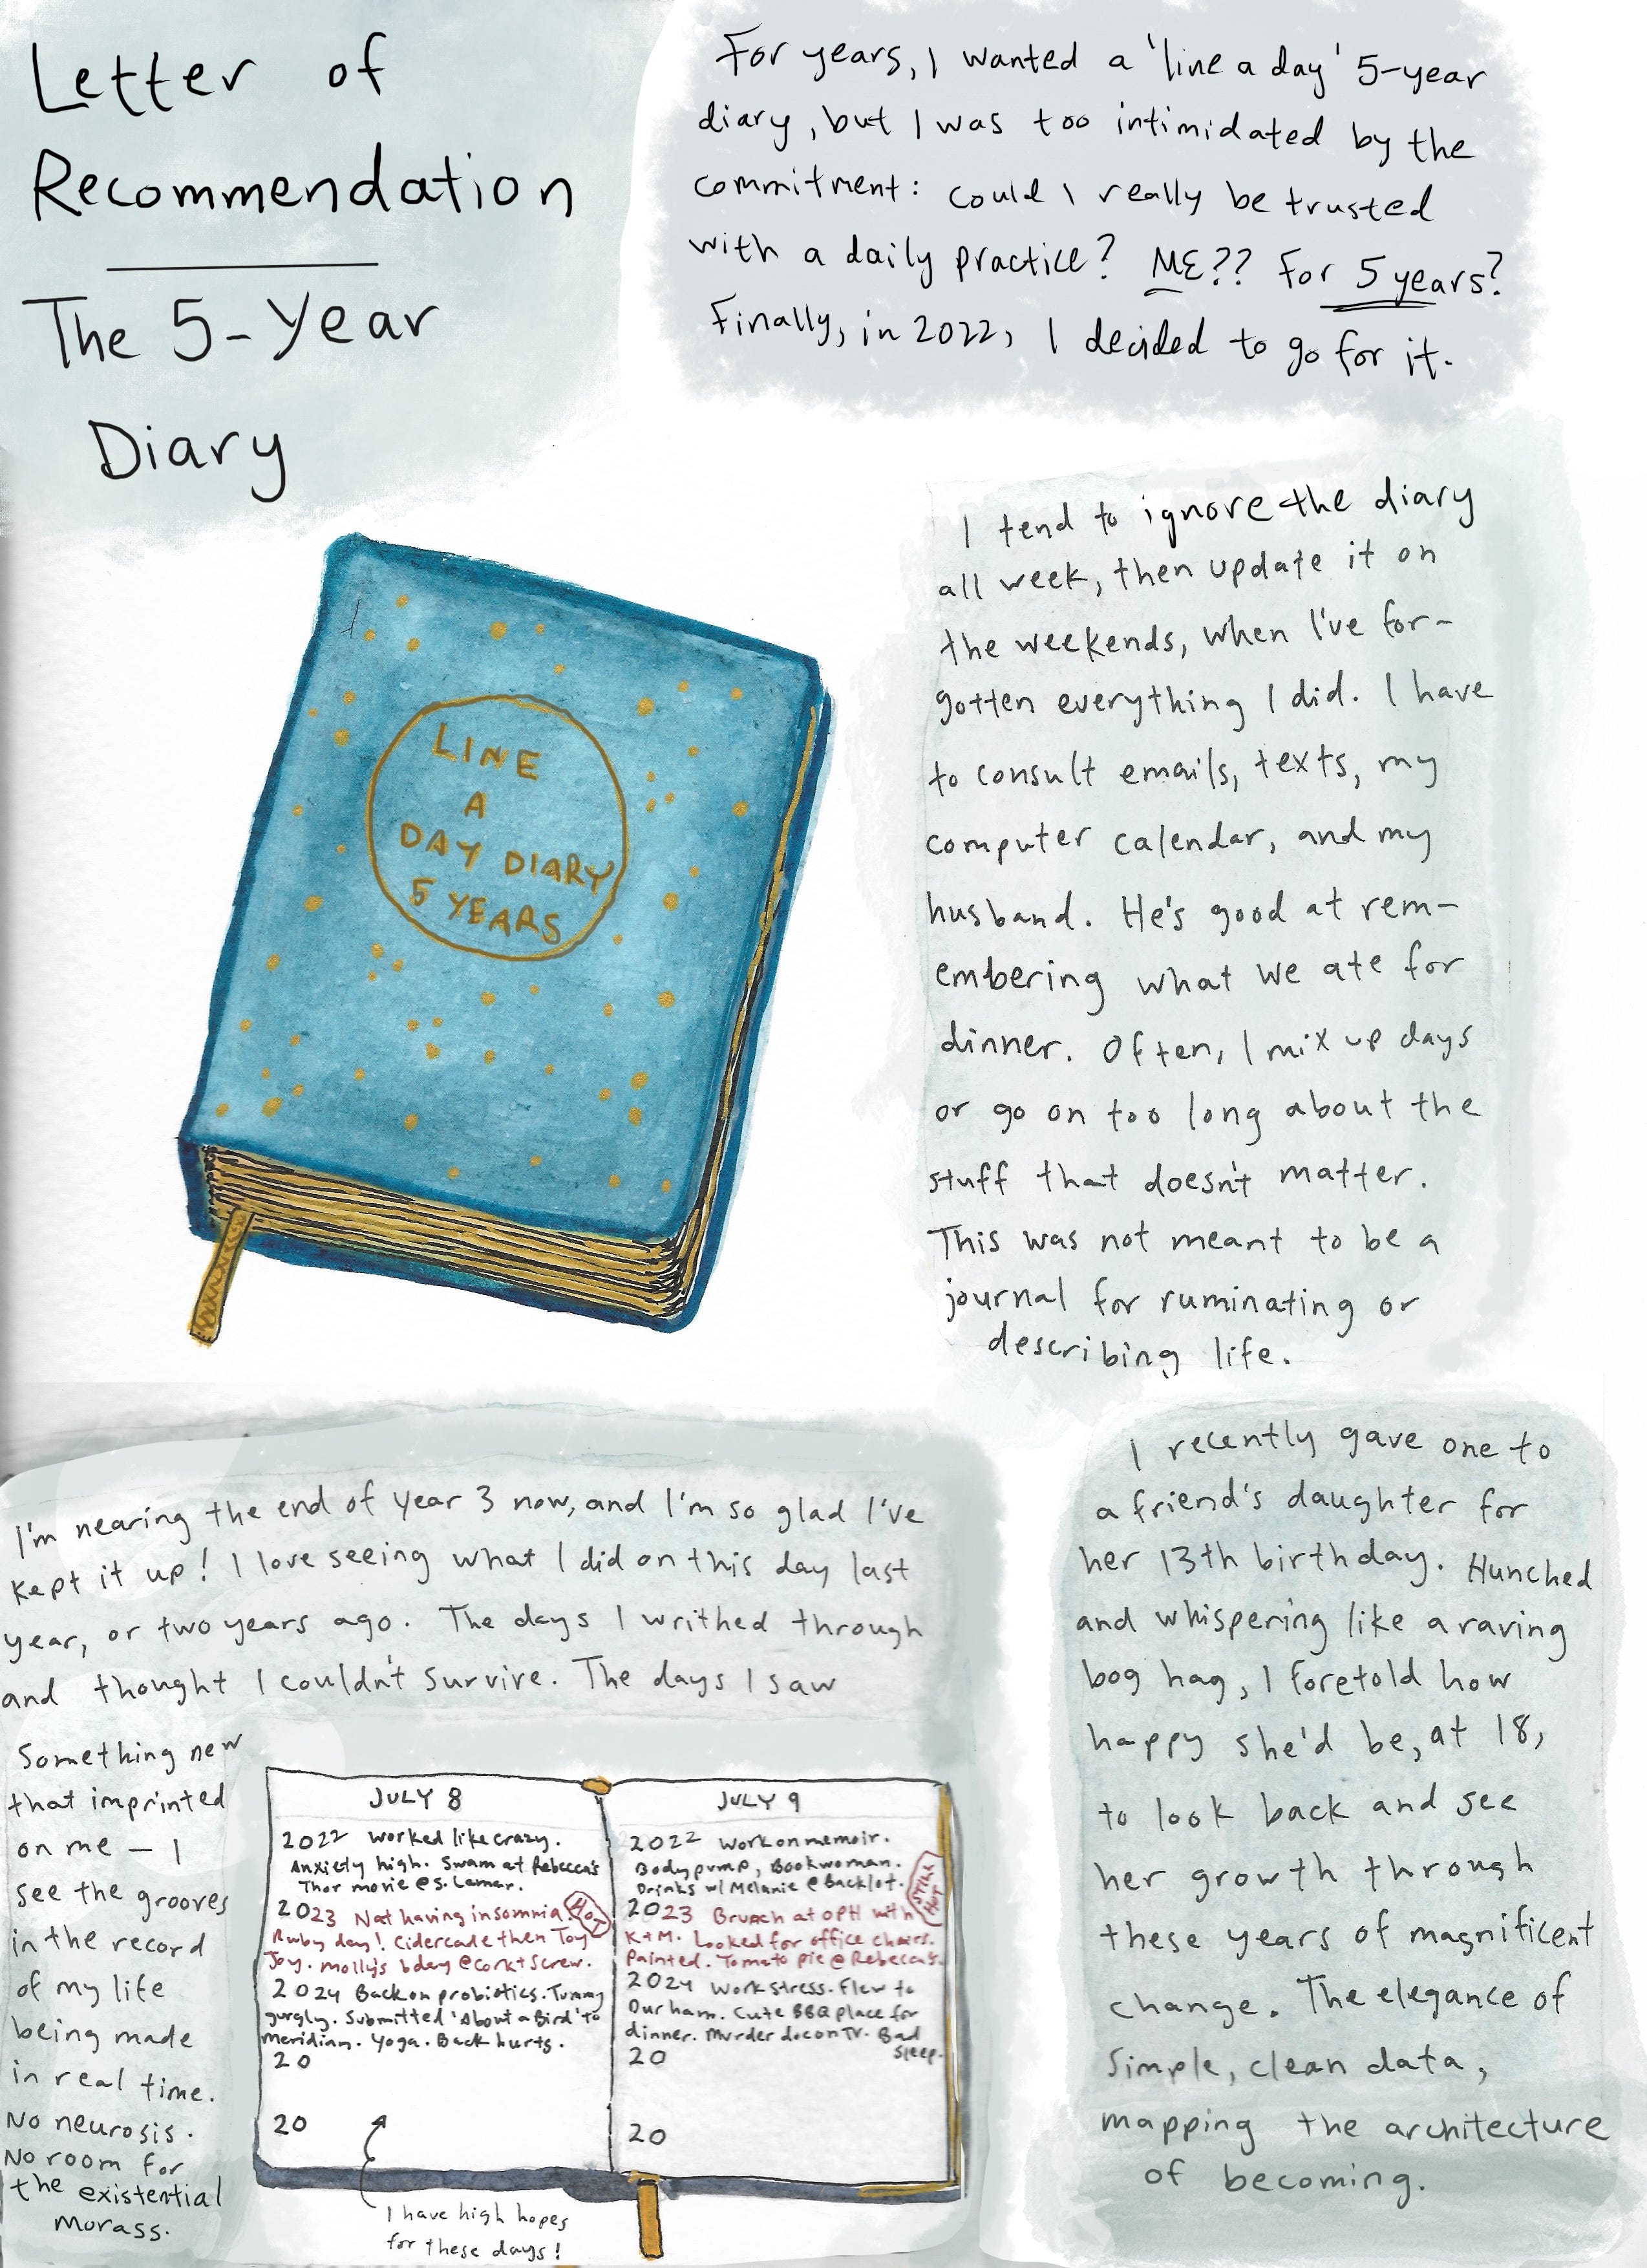 Letter of
Recommendation
The 5-Year
Diary
For years, I wanted a 'line a day' 5-year
diary, but I was too intimidated by the
commitment: could I really be trusted
with a daily practice? ME?? For 5 years?
Finally, in 2022, I decided to go for it.
LINE
A
DAY DIARY
5 YEARS
I tend to ignore the diary
all week, then update it on
the weekends, when I've for-
gotten everything I did. I have
to consult emails, texts, my
computer calendar, and my
husband. He's good at rem-
embering what we ate for
dinner. Often, I mix up days
or go on too long about the
stuff that doesn't matter.
This was not meant to be a
journal for ruminating or
describing life.
I'm nearing the end of year 3 now, and I'm so glad I've
kept it up! I love seeing what I did on this day last
year, or two years ago. The days I writhed through
and thought I couldn't survive. The days I saw
something new
that imprinted
on me – I
see the grooves
in the record
of my life
being made
in real time.
No neurosis.
No room for
the existential
morass.
JULY 8
2022 Worked like crazy.
Anxiety high. Swam at Rebecca's
Thor movie @ S. Lamar.
2023 Nat having insomnia. HOT
Ruby day! Cidercade then Toy
Joy. Molly's bday @ Cork + Screw.
2024 Back on probiotics. Tummy
gurgly. Submitted 'About a Bird' to
Meridian. Yoga. Back hurts.
20
20
JULY 9
2022 Work on memoir.
Bodypump, Bookwoman.
Drinks w/ Melanie @ Backlot.
STILL HOT
2023 Brunch at OPH with
K+M. Looked for office chairs.
Painted. Tomato pie @ Rebecca's.
2024 Work stress. Flew to
Durham. Cute BBQ place for
dinner. Murder doc on TV. Bad
sleep.
20
20
I have high hopes
for these days!
I recently gave one to
a friend's daughter for
her 13th birthday. Hunched
and whispering like a raving
bog hag, I foretold how
happy she'd be, at 18,
to look back and see
her growth through
these years of magnificent
change. The elegance of
simple, clean data,
mapping the architecture
of becoming.